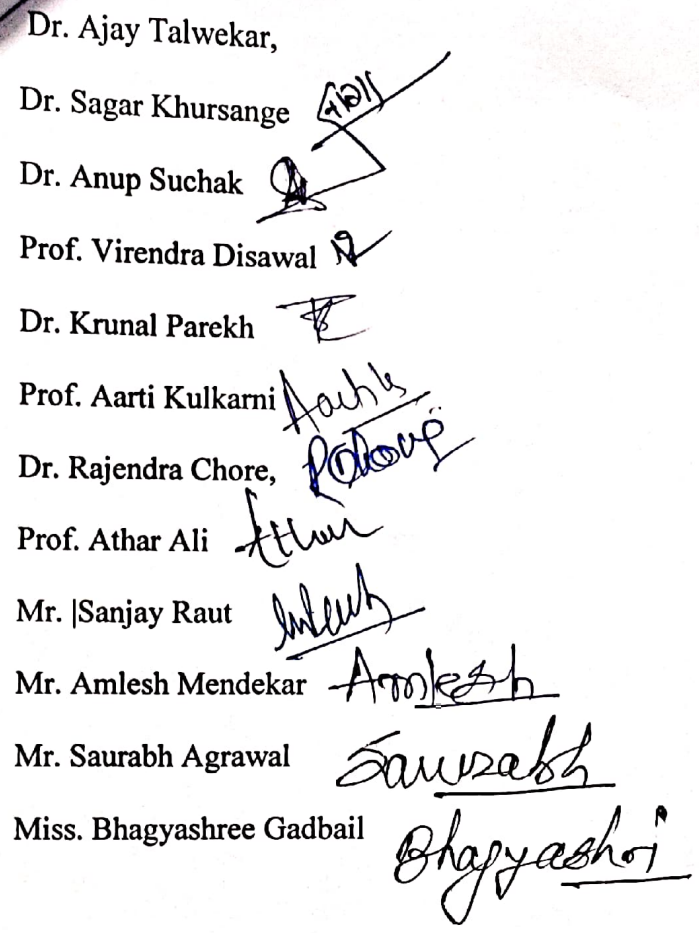 Dr. Ajay Talwekar,
Dr. Sagar Khursange
Dr. Anup Suchak
Prof. Virendra Disawal
Dr. Krunal Parekh
Prof. Aarti Kulkarni
Dr. Rajendra Chore,
Prof. Athar Ali Athar
Mr. |Sanjay Raut
Mr. Amlesh Mendekar Amlesh
Mr. Saurabh Agrawal Saurabh
Miss. Bhagyashree Gadbail Bhagyashri